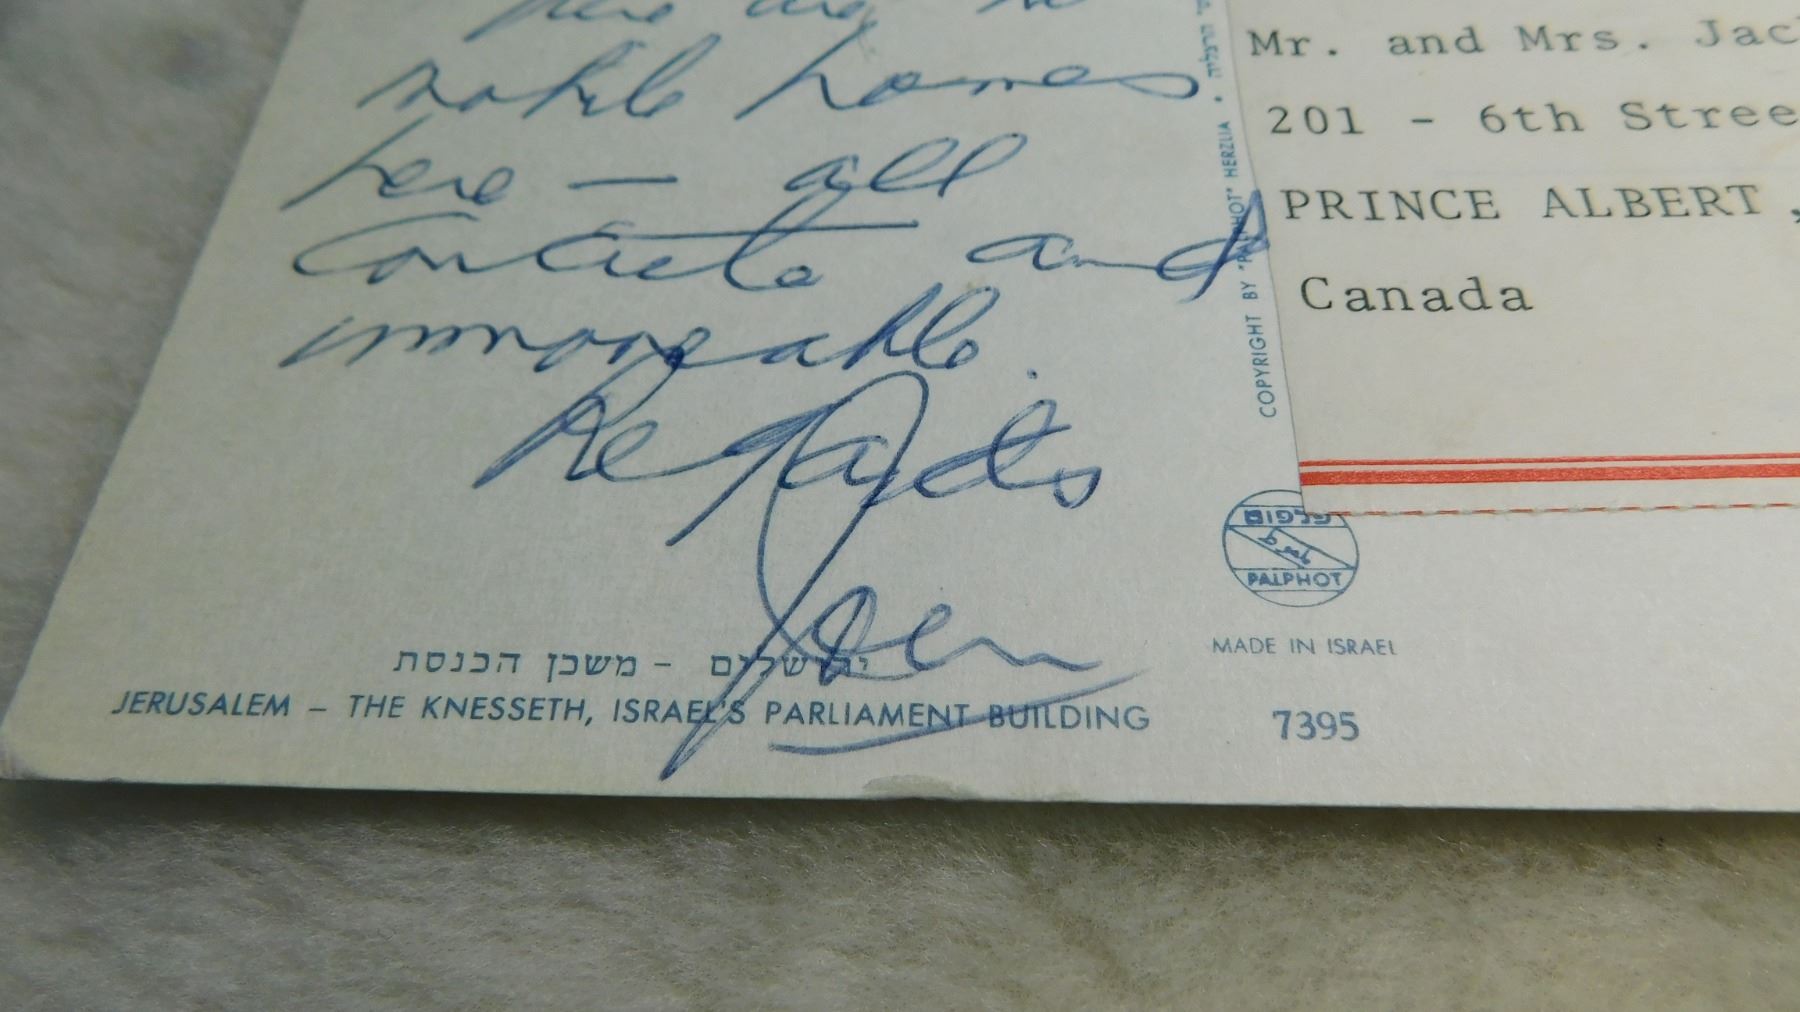 here are no
mobile homes
here — all
concrete and
immoveable.
Regards
Mr. and Mrs. Jac
201 - 6th Stree
PRINCE ALBERT,
Canada
COPYRIGHT BY "PALPHOT" HERZLIA • הרצליה
פלפוט
PALPHOT
MADE IN ISRAEL
ירושלים - משכן הכנסת
JERUSALEM – THE KNESSETH, ISRAEL'S PARLIAMENT BUILDING
7395